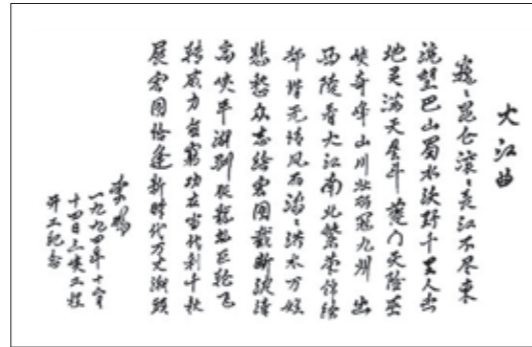 大江曲
巍巍昆仑滚滚长江不尽东
流望巴山蜀水沃野千里人杰
地灵满天星斗 夔门天险巫
峡奇峰山川壮丽冠九州 出
西陵看大江南北繁荣锦绣
却惜无情风雨滔滔洪水万姓
悲愁众志绘宏图截断波涛
高峡平湖驯服龙巨轮飞
转威力无穷功在当代利千秋
展宏图恰逢新时代万丈潮头
李鹏
一九九四年十二月
十四日三峡工程
开工纪念